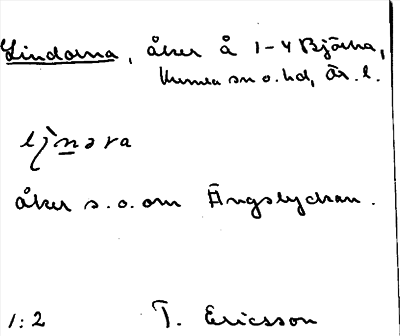 Lindorna, åker å 1-4 Björka,
Kumla sn o. hd, Är. l.
ljnəra
åker s.o. om Ängslyckan.
1:2 T. Ericsson